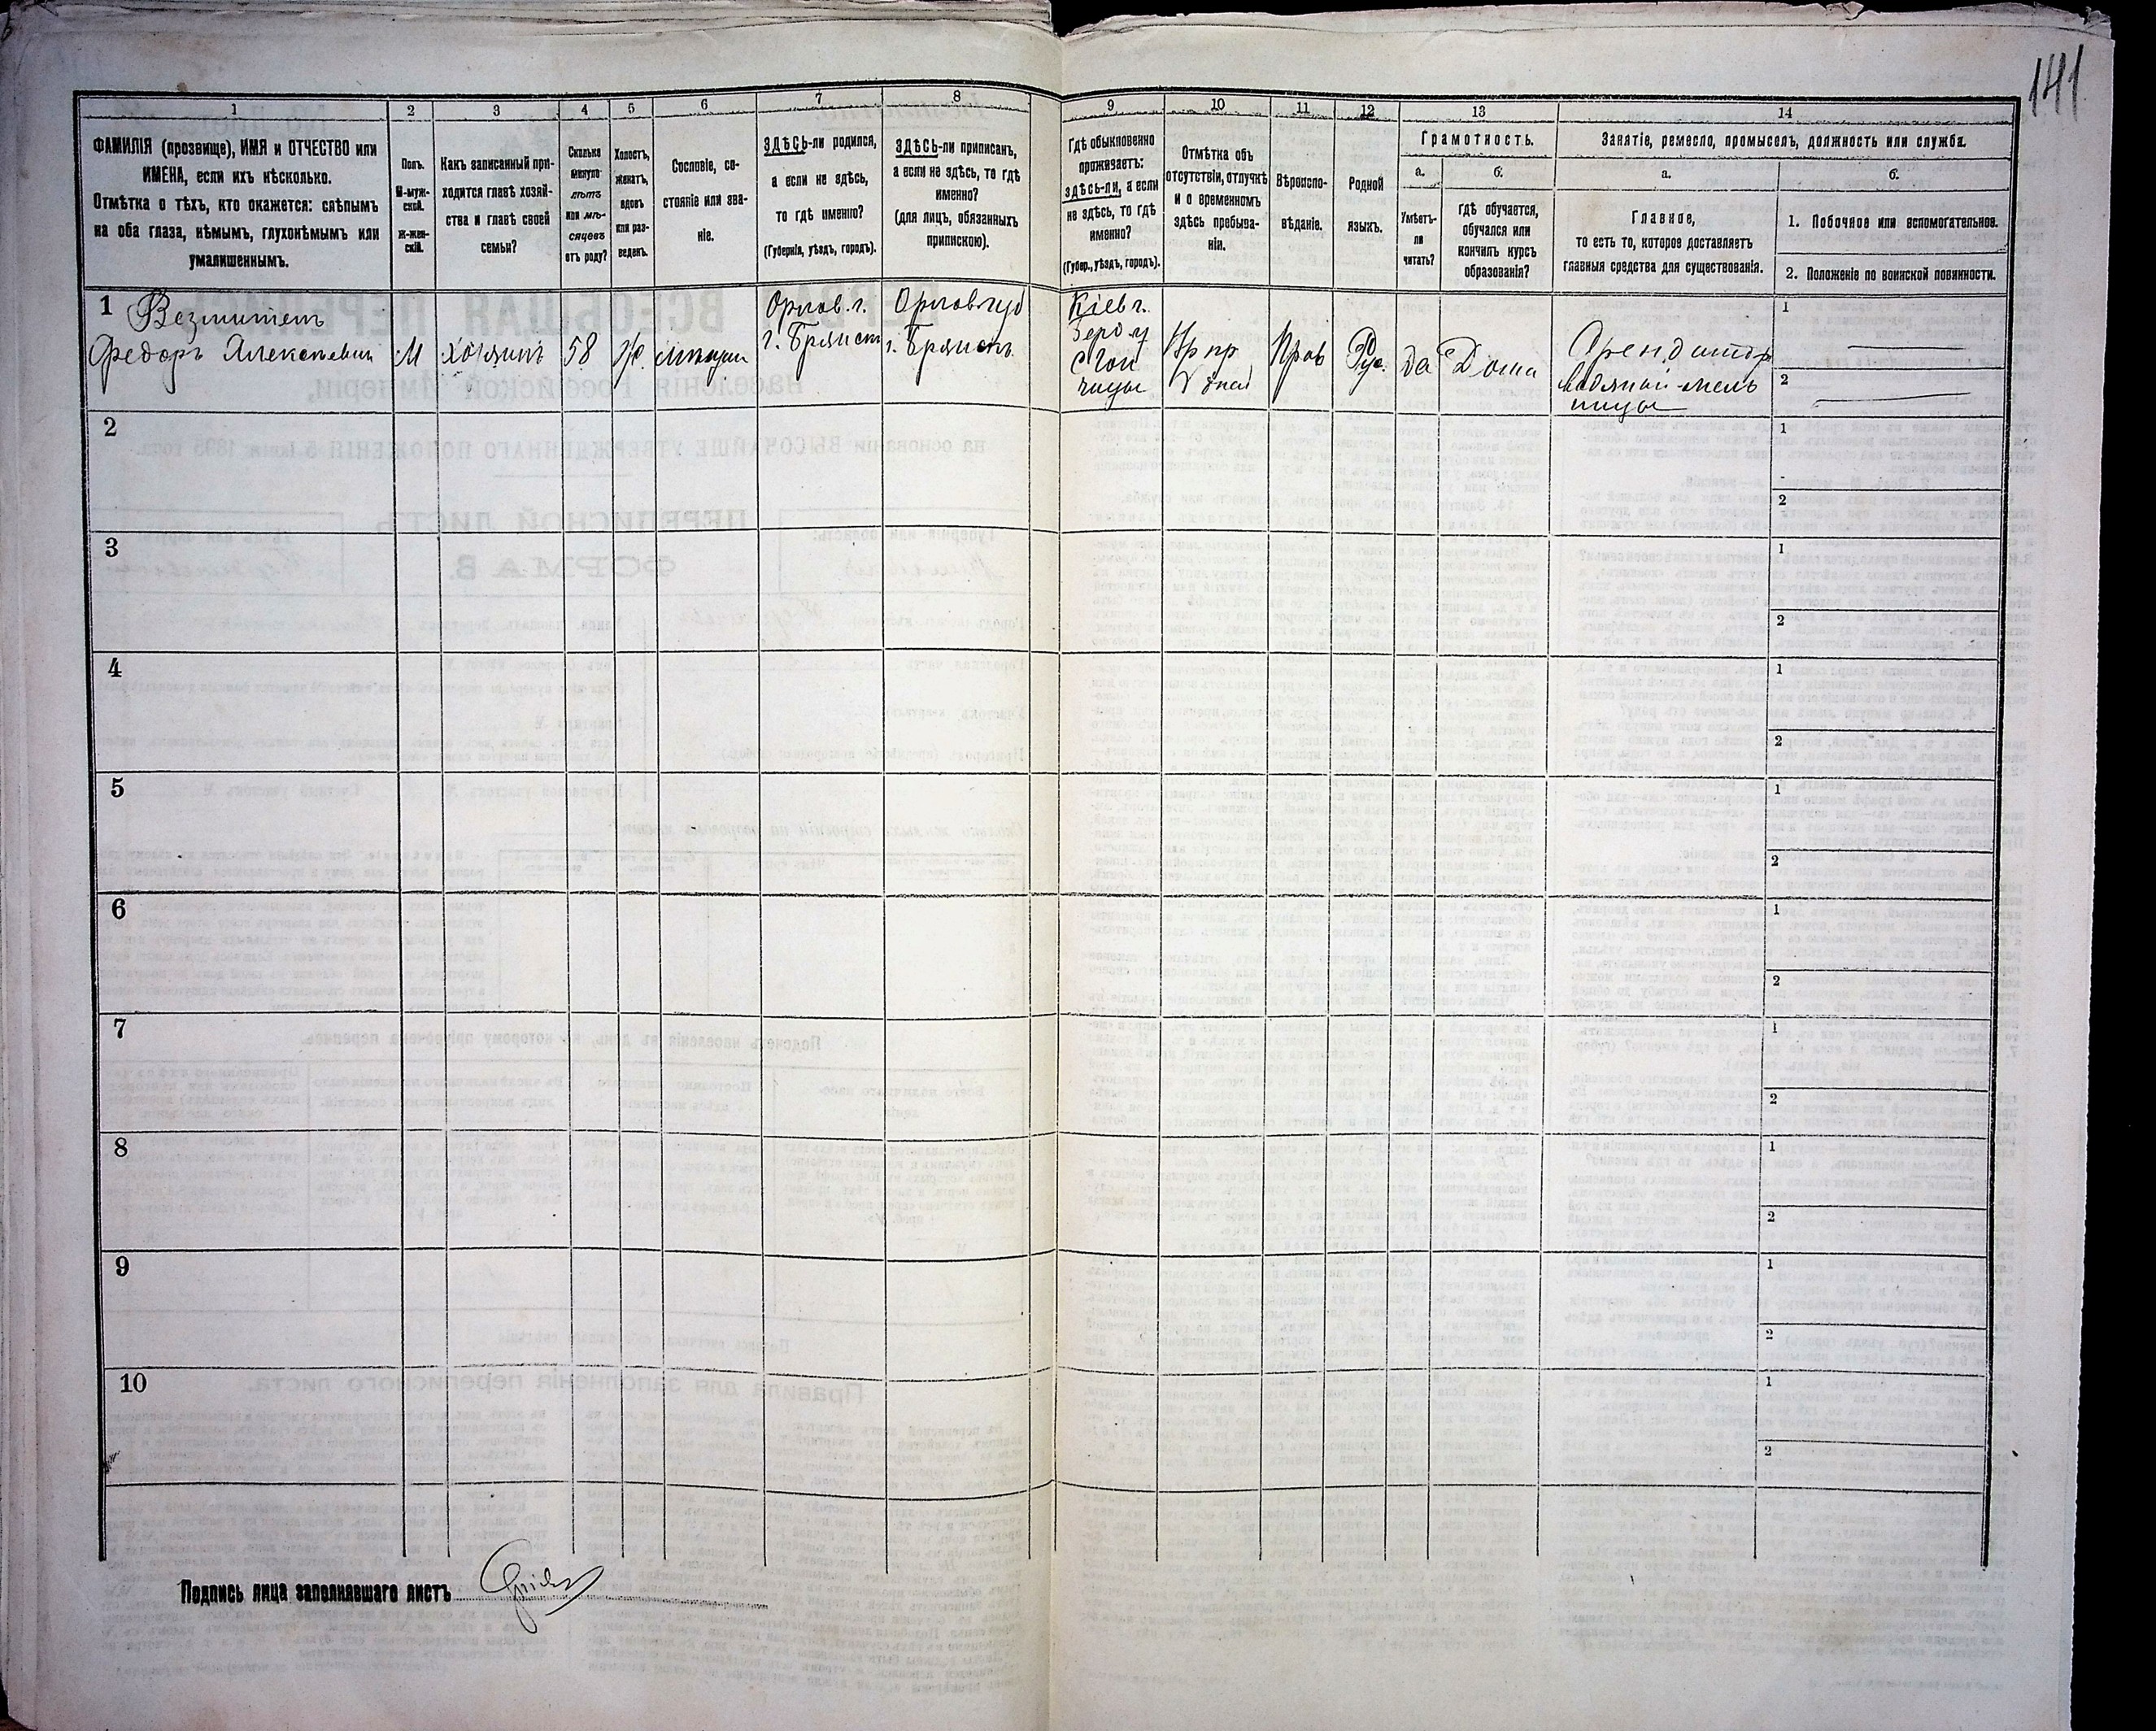 141
1
2
3
4
5
6
7
8
9
10
11
12
13
14
ФАМИЛІЯ (прозвище), ИМЯ и ОТЧЕСТВО или
ИМЕНА, если ихъ нѣсколько.
Отмѣтка о тѣхъ, кто окажется: слѣпымъ
на оба глаза, нѣмымъ, глухонѣмымъ или
умалишеннымъ.
Полъ.
М-муж-
ской.
Ж-жен-
скій.
Какъ записанный при-
ходится главѣ хозяй-
ства и главѣ своей
семьи?
Сколько
минуло
лѣтъ
или мѣ-
сяцевъ
отъ роду?
Холостъ,
женатъ,
вдовъ
или раз-
веденъ.
Сословіе, со-
стояніе или зва-
ніе.
ЗДѢСЬ-ли родился,
а если не здѣсь,
то гдѣ именно?
(Губернія, уѣздъ, городъ).
ЗДѢСЬ-ли приписанъ,
а если не здѣсь, то гдѣ
именно?
(для лицъ, обязанныхъ
припискою).
Гдѣ обыкновенно
проживаетъ:
здѣсь-ли, а если
не здѣсь, то гдѣ
именно?
(Губер., уѣздъ, городъ).
Отмѣтка объ
отсутствіи, отлучкѣ
и о временномъ
здѣсь пребыва-
ніи.
Вѣроиспо-
вѣданіе.
Родной
языкъ.
Грамотность.
а.
б.
Умѣетъ-
ли
читать?
гдѣ обучается,
обучался или
кончилъ курсъ
образованія?
Занятіе, ремесло, промыселъ, должность или служба.
а.
б.
Главное,
то есть то, которое доставляетъ
главныя средства для существованія.
1. Побочное или вспомогательное.
2. Положеніе по воинской повинности.
1
Федоръ Алексѣевич
М
хозяинъ
58
Ж.
мѣщан
Орлов. г.
г. Брянск
Орлов губ
г. Брянскъ
Кіев г.
Пров
Рус.
да
Дома
Арендатор
водяной мель
ницы
1
2
2
1
2
3
1
2
4
1
2
5
1
2
6
1
2
7
1
2
8
1
2
9
1
2
10
1
2
Подпись лица заполнявшаго листъ